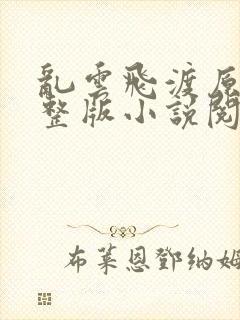 亂雲飛渡原
整版小說閱
布萊恩鄧納姆